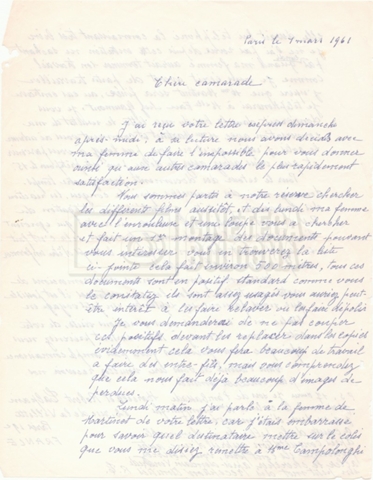 Paris le 7 mars 1961
Chère camarade
J'ai reçu votre lettre dimanche
après-midi : à sa lecture nous avons décidé avec
ma femme de faire l'impossible pour vous donner
ainsi qu'aux autres camarades le plus rapidement
satisfaction.
Nous sommes partis à notre réserve chercher
les différents films aussitôt et dès lundi ma femme
avec l'monteuse et une loupe vous a cherché
et fait un montage des documents pouvant
vous intéresser vous en trouverez la liste
ci-jointe cela fait environ 500 mètres, tous ces
documents sont en positif standard comme vous
le constatez ils sont assez usagés vous aurez peut-
être intérêt à les faire relaver ou enfin dépolis
Je vous demanderai de ne pas couper
ces positifs devant les replacer dans les copies
évidemment cela vous fera beaucoup de travail
à faire des inter-fils, mais vous comprendrez
que cela nous fait déjà beaucoup d'images de
perdues.
Lundi matin j'ai parlé à la femme de
de votre lettre, car j'étais embarrassé
pour savoir quel destinataire mettre sur le colis
que vous me disiez remettre à Mme Campolonghi